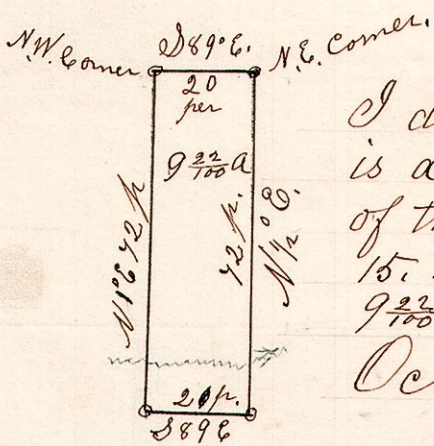 S89°E.
N.W. Corner
N.E. Corner.
20
per
9 22/100 A
N1°E 72 p
72 p.
N 1/2° E.
21 p.
S89E
I d
is a
of th
15.
9 22/100
Oc